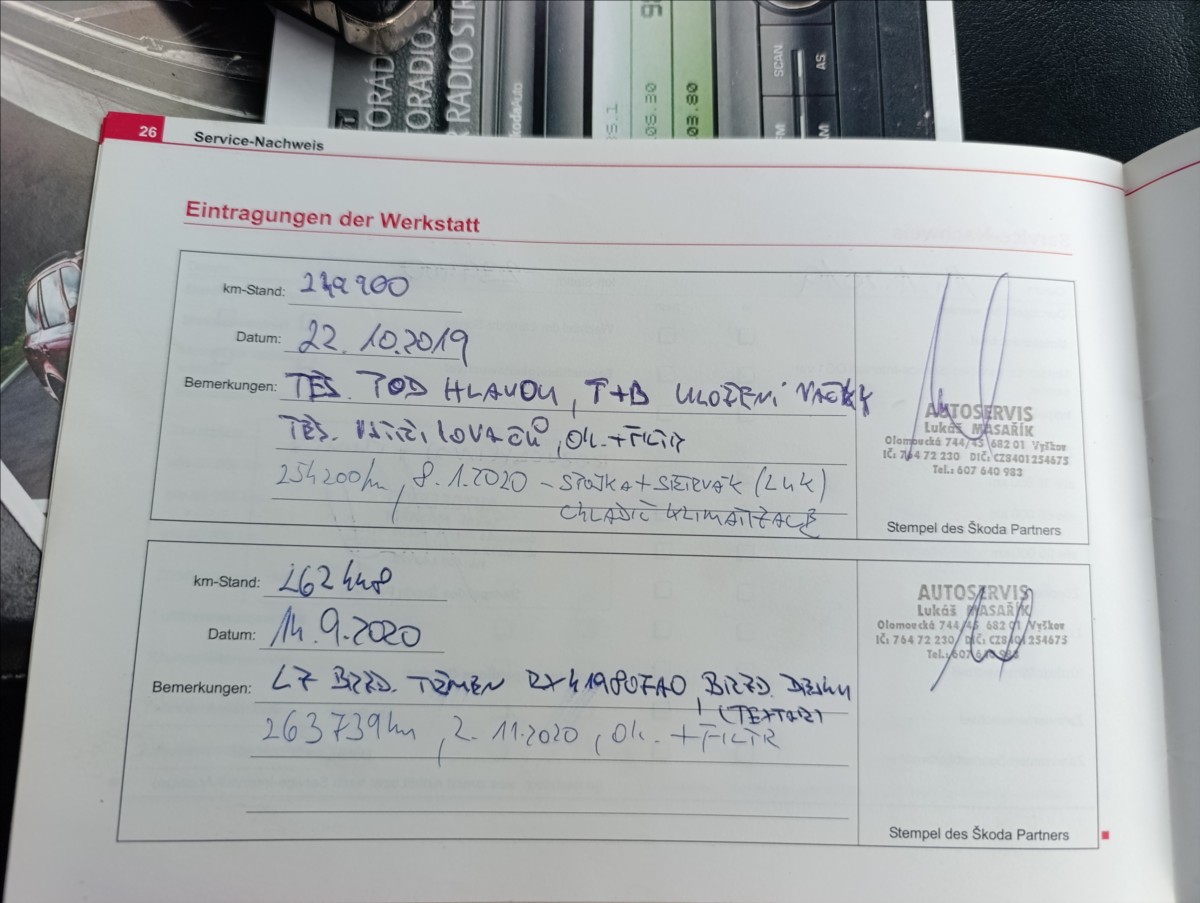 TORÁD
TORADIO
R RADIO STR
SkodaAuto
98
08.30
03.80
SCAN
AS
26 Service-Nachweis
Eintragungen der Werkstatt
km-Stand: 249 900
Datum: 22. 10. 2019
Bemerkungen: TĚS. POD HLAVOU, T+B ULOŽENÍ VAČKY
TĚS. OK. + FILTR
254200km, 8. 1. 2020 - STOJKA + (LUK)
CHLADIČ KLIMATIZACE
AUTOSERVIS
Lukáš MASAŘÍK
Olomoucká 744/45 682 01 Vyškov
IČ: 764 72 230 DIČ: CZ8401254675
Tel.: 607 640 983
Stempel des Škoda Partners
km-Stand: 262 448
Datum: 14. 9. 2020
Bemerkungen: LZ BRZD. TŘMEN BRZD. DESKY
(TEXTAR)
263739km, 2. 11. 2020, OK. + FILTR
AUTOSERVIS
Lukáš MASAŘÍK
Olomoucká 744/45 682 01 Vyškov
IČ: 764 72 230 DIČ: CZ8401254675
Tel.: 607 640 983
Stempel des Škoda Partners